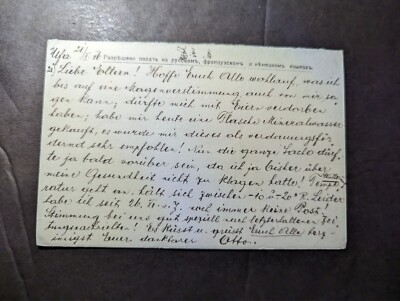 Ufa 21/ Разрешено писать на русскомъ, французскомъ и нѣмецкомъ языкахъ.
Liebe Eltern! Hoffe Euch Alle wohlauf, was ich
bis auf eine Magenverstimmung auch von mir sa-
gen kann; dürfte mich mit Eiern verdorben
haben; habe mir heute eine Flasche Mineralwasser
gekauft, es wurde mir dieses als verdauungsför-
dernd sehr empfohlen! Nun die ganze Sache dürf-
te ja bald vorüber sein, da ich ja bisher über
meine Gesundheit nicht zu klagen hatte! Tempe-
ratur geht an. hält sich zwischen -10 u -20° R. Leider
habe ich seit 26. noch immer keine Post!
Stimmung bei uns gut speziell nach letzterhaltenen Zei-
tungsnachrichten! Es küsst u. grüsst Euch Alle herz-
innigst Euer dankbarer Otto.